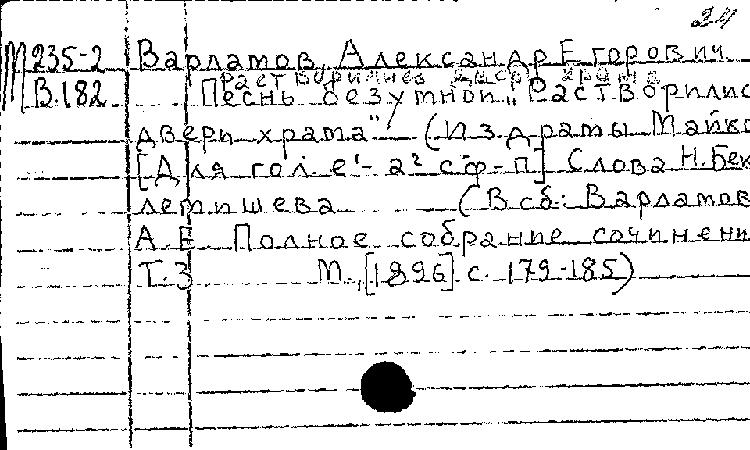 24
М 235-2 Варламов, Александр Егорович
В.182 Растворились двери храма
Песнь безумной „Растворилис
двери храма" (Из драмы Майко
[Для гол. е¹- а² с ф-п] Слова Н. Бек
летишева (В сб: Варламов
А.Е. Полное собрание сочинени
Т.3 М.,[1896] с. 179-185)